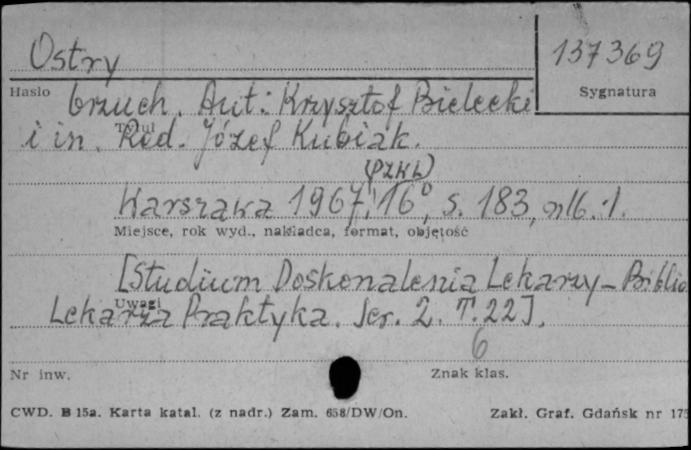 Ostry
137369
Hasło
Sygnatura
brzuch. Aut: Krzysztof Bielecki
i in. Red. Józef Kubiak.
Tytuł
(PZWL)
Warszawa 1967, 16°, s. 183, nlb. 1.
Miejsce, rok wyd., nakładca, format, objętość
[Studium Doskonalenia Lekarzy – Biblio
Uwagi
Lekarza Praktyka. Ser. 2. T. 22].
6
Nr inw.
Znak klas.
CWD. B 15a. Karta katal. (z nadr.) Zam. 658/DW/On.
Zakł. Graf. Gdańsk nr 175